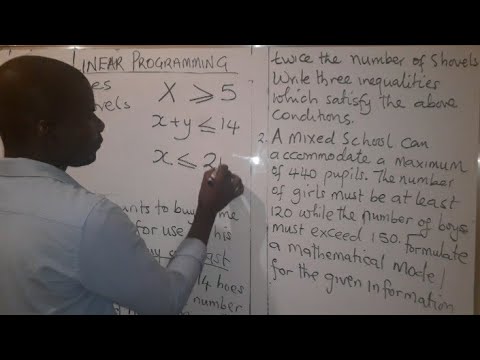 LINEAR PROGRAMMING
X ≥ 5
x+y ≤ 14
x ≤ 2
to buy
for use his
14 hoes
number
twice the number of Shovels
Write three inequalities
which satisfy the above
conditions.
2. A mixed School can
accommodate a maximum
of 440 pupils. The number
of girls must be at least
120 while the number of boys
must exceed 150. Formulate
a mathematical Model
for the given information